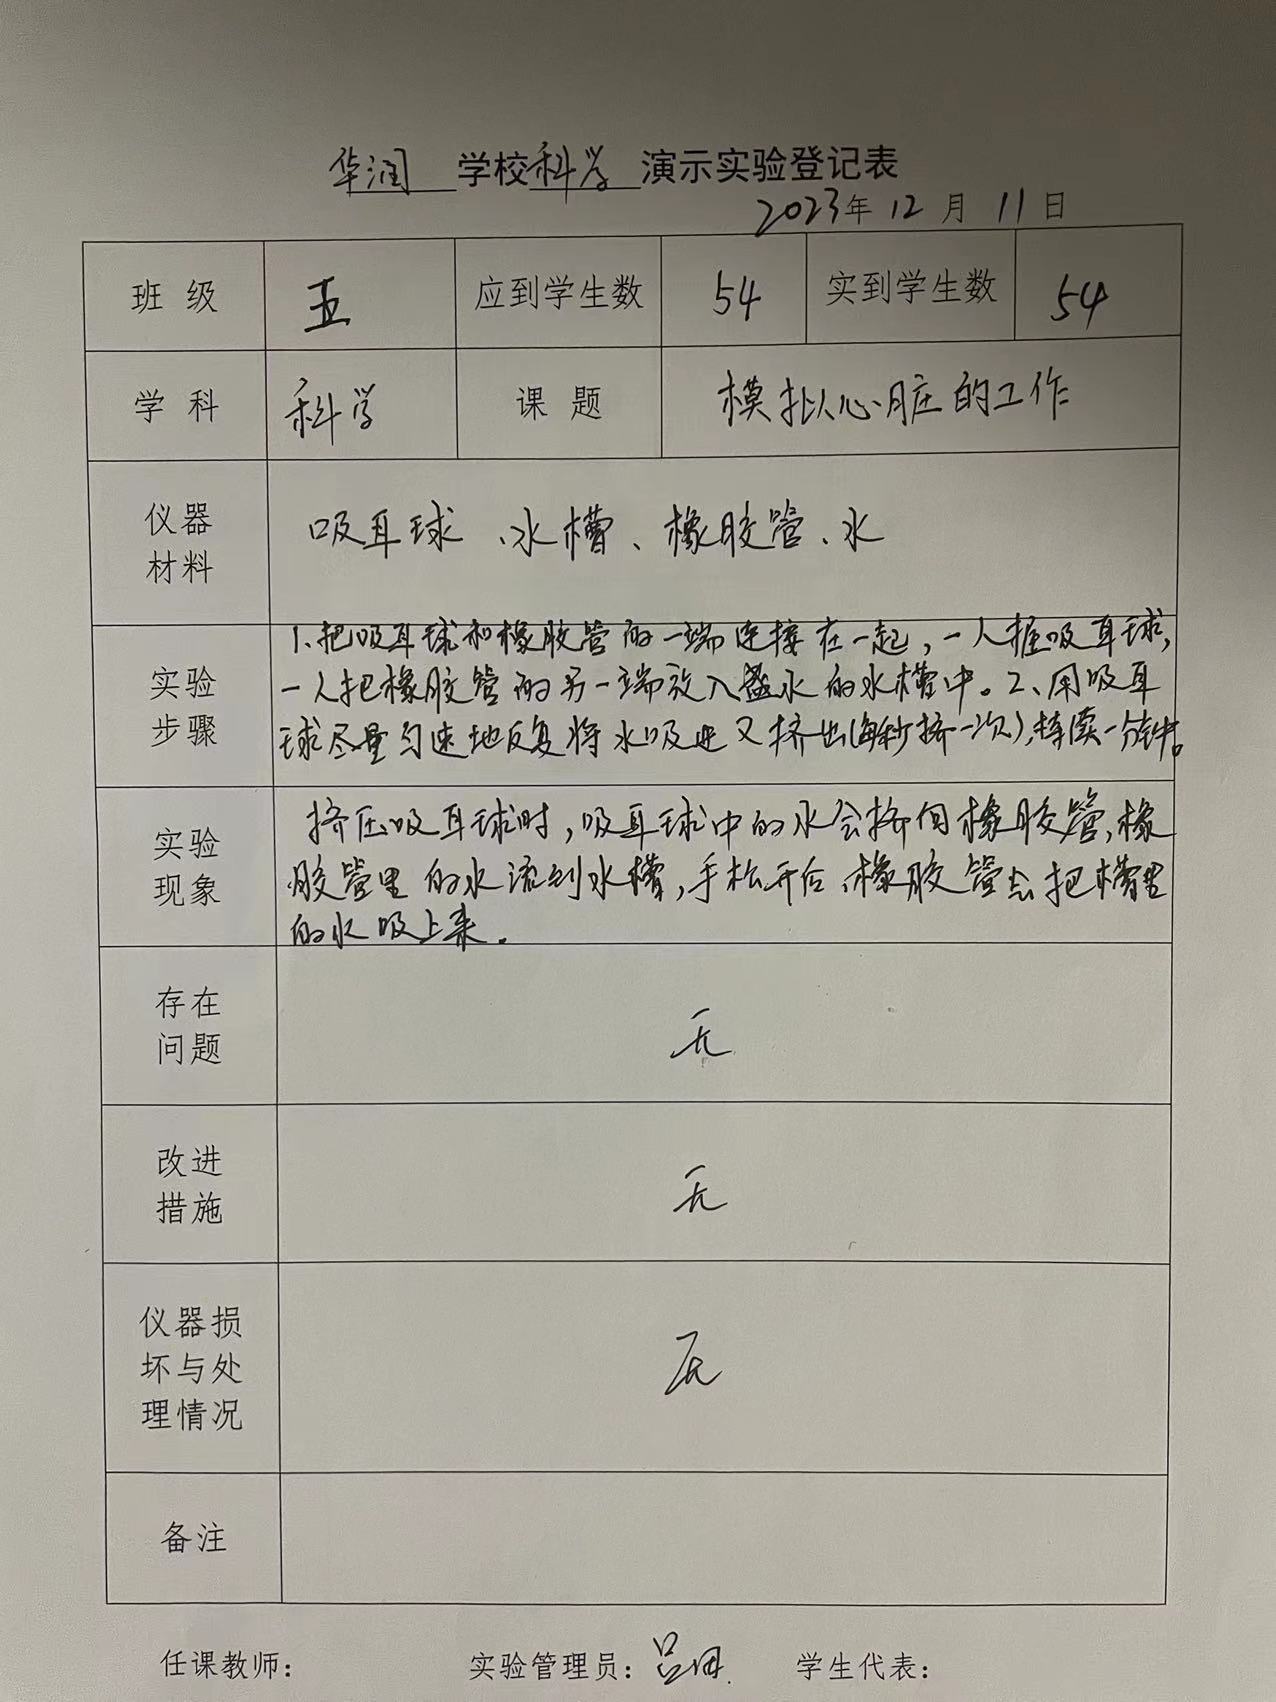 华润 学校 科学 演示实验登记表
2023年 12 月 11 日
班 级 五 应到学生数 54 实到学生数 54
学 科 科学 课 题 模拟心脏的工作
仪器
材料
吸耳球、水槽、橡胶管、水
实验
步骤
1、把吸耳球和橡胶管的一端连接在一起，一人握吸耳球，
一人把橡胶管的另一端放入盛水的水槽中。2、用吸耳
球尽量匀速地反复将水吸进又挤出(每秒挤一次)，持续一分钟。
实验
现象
挤压吸耳球时，吸耳球中的水会挤向橡胶管，橡
胶管里的水流到水槽，手松开后，橡胶管会把槽里
的水吸上来。
存在
问题
无
改进
措施
无
仪器损
坏与处
理情况
无
备注
任课教师： 实验管理员：吕 学生代表：